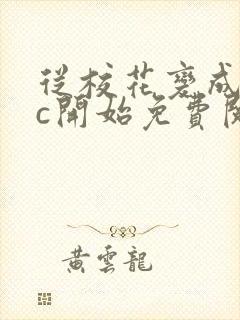 從校花變成
c開始免費閱
黃雲龍